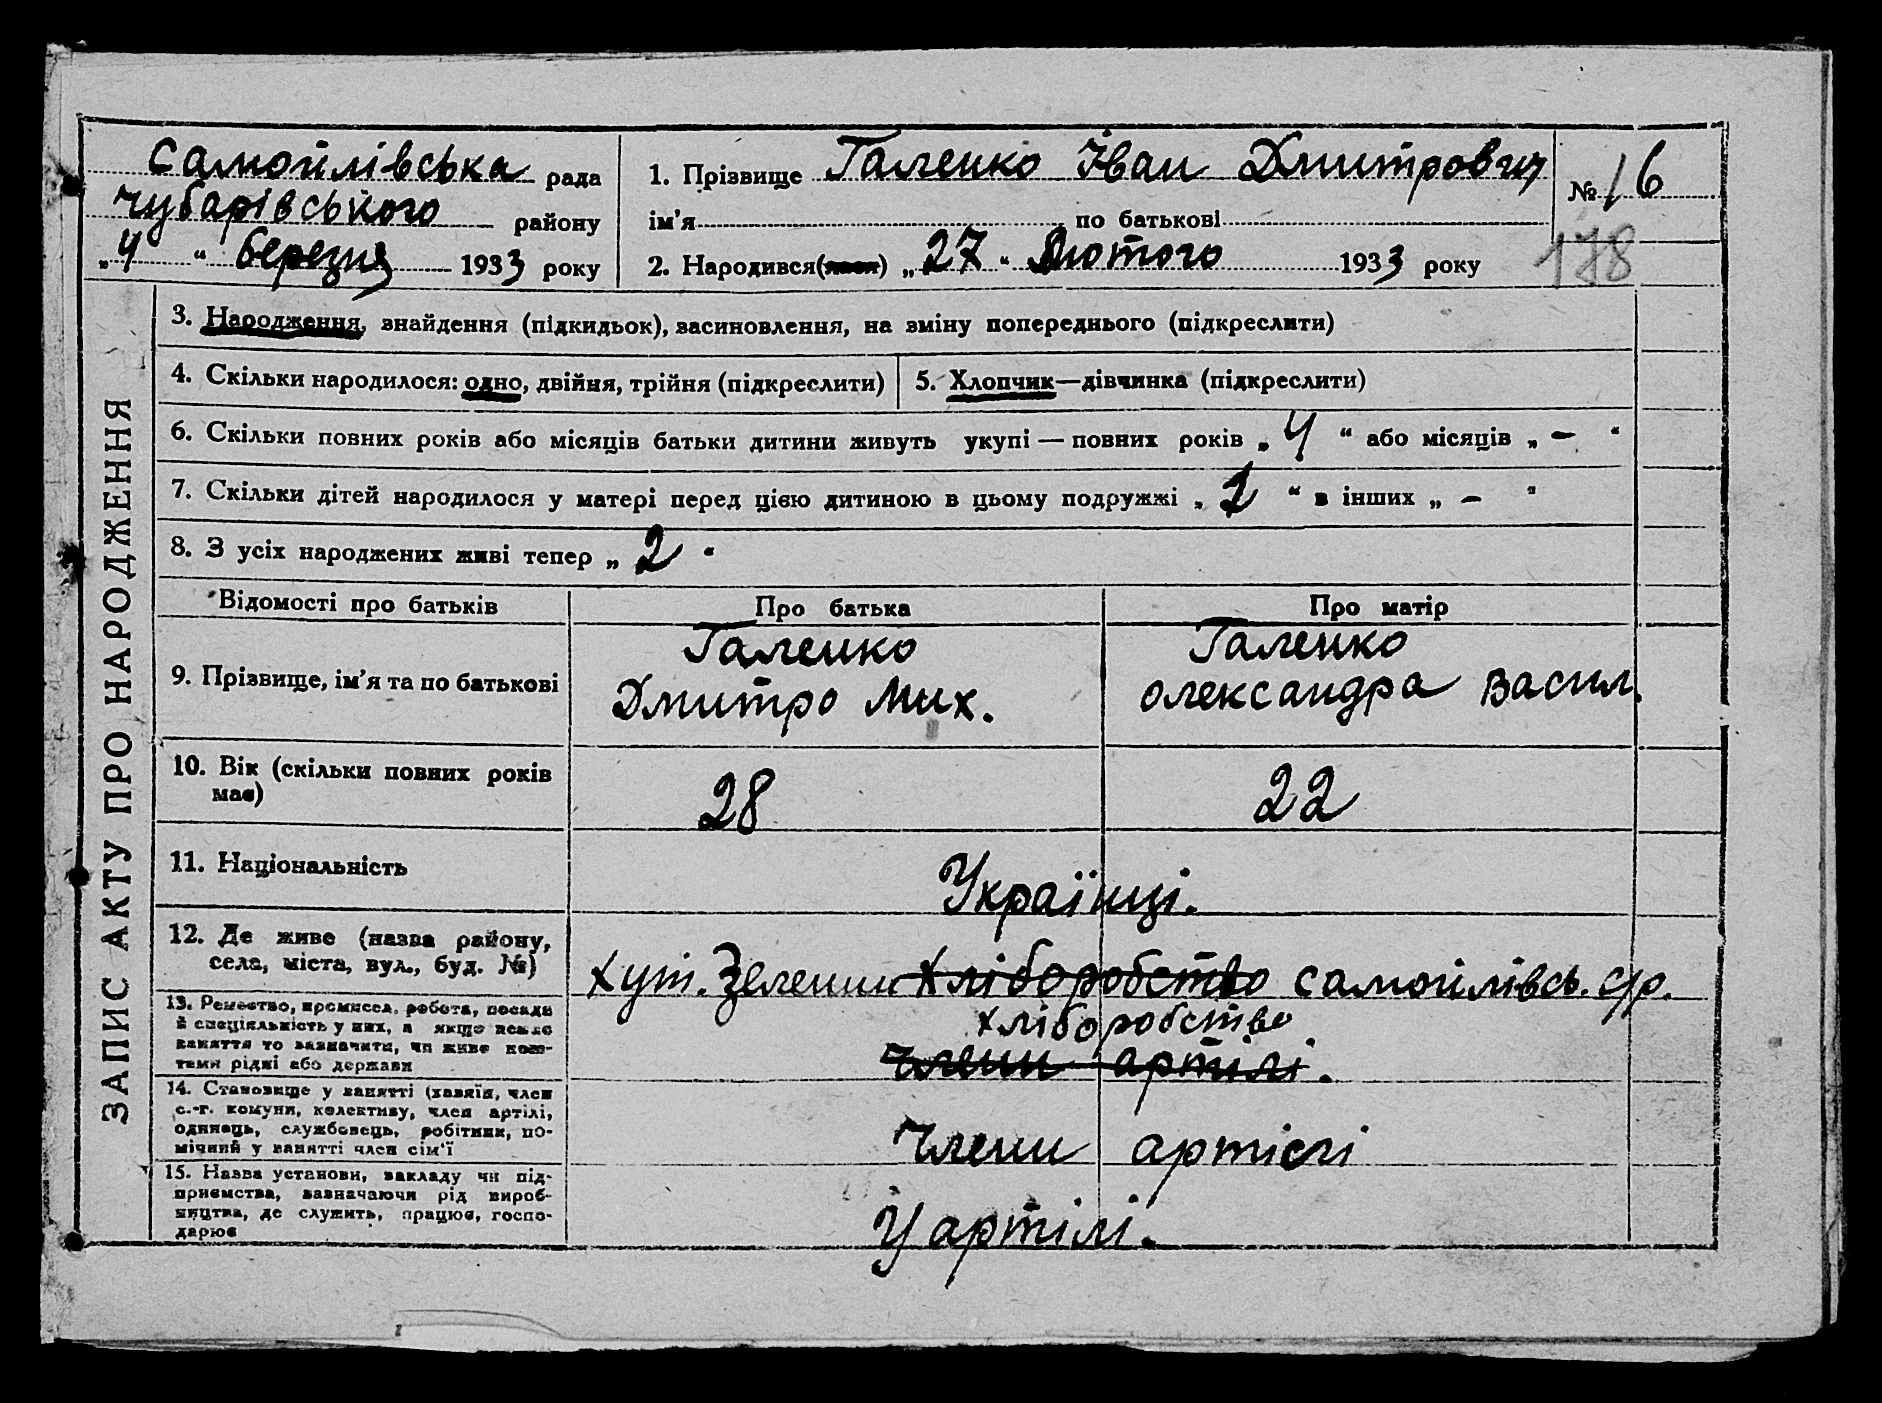 Самойлівська рада
Чубарівського району
„4“ березня 1933 року
1. Прізвище Галенко Іван Дмитрович
ім’я по батькові
2. Народився(лася) „27“ Лютого 1933 року
№ 16
178
ЗАПИС АКТУ ПРО НАРОДЖЕННЯ
3. Народження, знайдення (підкидьок), засиновлення, на зміну попереднього (підкреслити)
4. Скільки народилося: одно, двійня, трійня (підкреслити)
5. Хлопчик—дівчинка (підкреслити)
6. Скільки повних років або місяців батьки дитини живуть укупі — повних років „4“ або місяців „–“
7. Скільки дітей народилося у матері перед цією дитиною в цьому подружжі „2“ в інших „–“
8. З усіх народжених живі тепер „2“
Відомості про батьків Про батька Про матір
9. Прізвище, ім’я та по батькові
Галенко
Дмитро Мих.
Галенко
Олександра Васил.
10. Вік (скільки повних років
має)
28 22
11. Національність
Українці.
12. Де живе (назва району,
села, міста, вул., буд. №)
Хут. Зелений Хліборобство Самойлівсь. С/р.
13. Ремество, промисел, робота, посада
й спеціяльність у них, а якщо немає
заняття то зазначити, чи живе кош-
тами рідні або держави
хліборобство
Члени артілі.
14. Становище у занятті (хазяїн, член
с.-г. комуни, колективу, член артілі,
одинець, службовець, робітник, по-
мічний у занятті член сім’ї
Члени артілі
15. Назва установи, закладу чи під-
приємства, зазначаючи рід вироб-
ництва, де служить, працює, госпо-
дарює
У артілі.